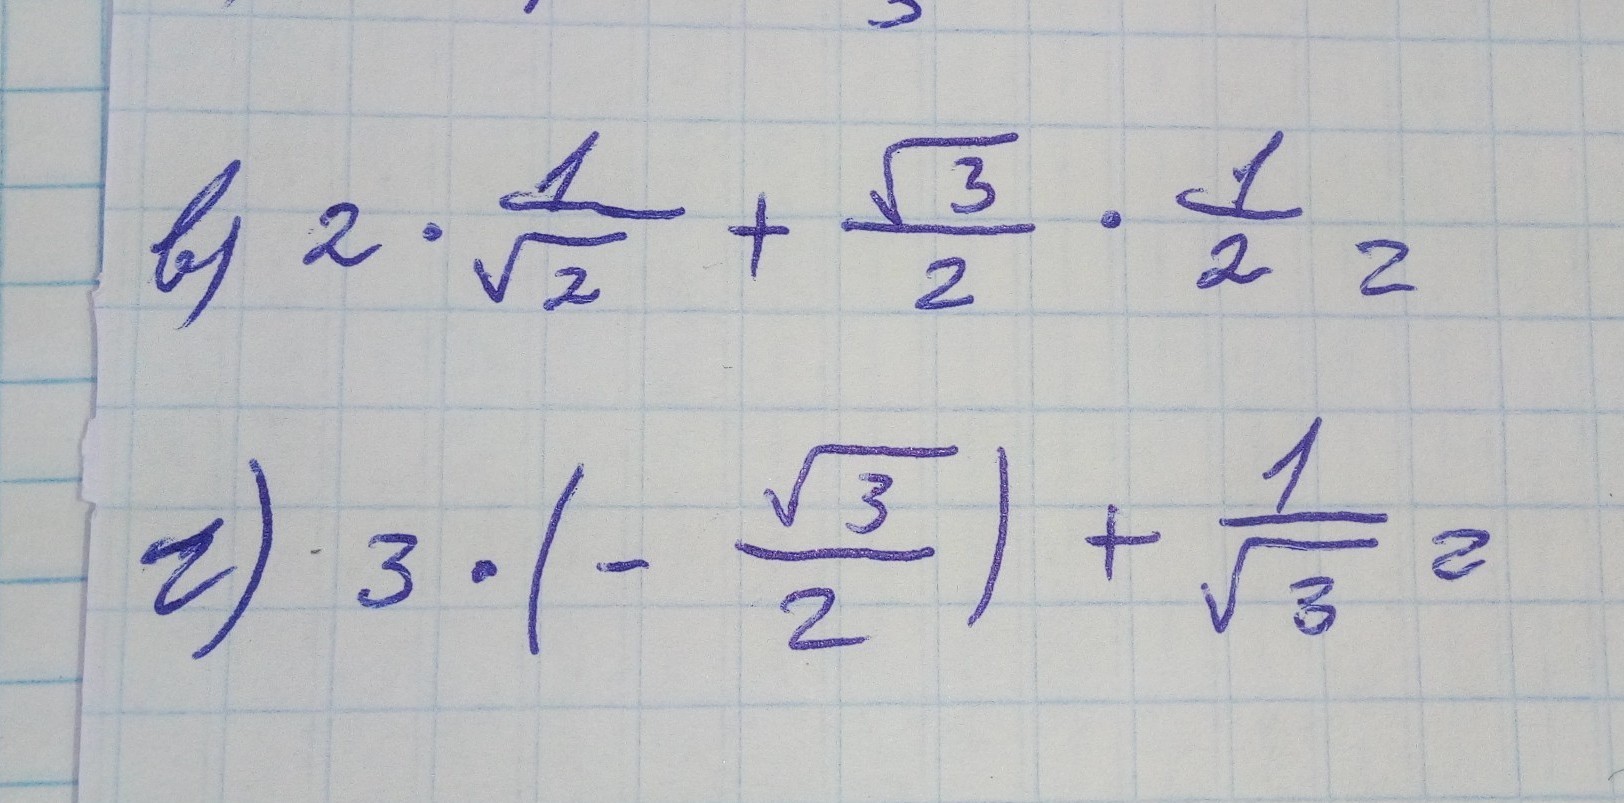 в) 2 · 1/√2 + √3/2 · 1/2 =
г) 3 · (- √3/2) + 1/√3 =